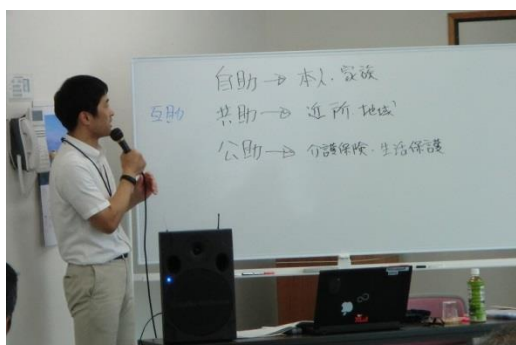 自助→本人・家族
互助 共助→近所・地域
公助→介護保険・生活保護